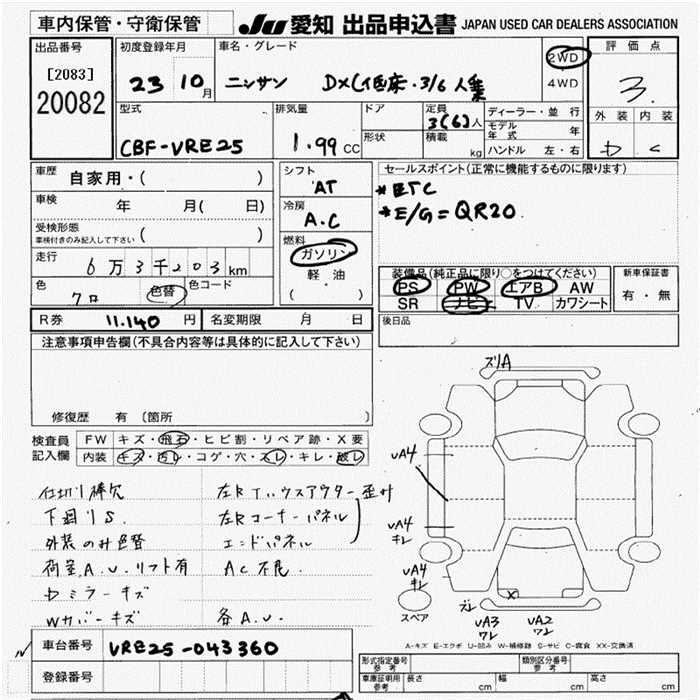 車内保管・守衛保管
JU 愛知 出品申込書 JAPAN USED CAR DEALERS ASSOCIATION
出品番号
[2083]
20082
初度登録年月
23 10月
車名・グレード
ニッサン DX(低床・3/6人乗
2WD
4WD
評価点
3.
外装 内装
D C
型式
CBF-VRE25
排気量
1.99 CC
ドア
形状
定員
3(6)人
積載
kg
ディーラー・並行
モデル年式 年
ハンドル 左・右
車歴 自家用・( )
車検 年 月( 日)
受検形態
車検付きのみ記入して下さい ( )
走行 6万3千203km
色 クロ 色替 色コード
シフト
AT
冷房
A.C
燃料
ガソリン
軽油
( )
セールスポイント(正常に機能するものに限ります)
*ETC
*E/G=QR20
装備品(純正品に限り○をつけてください)
PS PW エアB AW
SR ナビ TV カワシート
新車保証書
有・無
R券 11.140円 名変期限 月 日
後日品
注意事項申告欄(不具合内容等は具体的に記入して下さい)
修復歴 有 〔箇所
検査員記入欄
FW キズ・飛石・ヒビ割・リペア跡・X要
内装 キズ・汚レ・コゲ・穴・スレ・キレ・破レ
仕切り棒欠
下廻りS
外装のみ色替
荷室A.U.リフト有
Dミラーキズ
Wカバーキズ
左Rタイハウスアウター歪み
左Rコーナーパネル
エンドパネル
AC不良
各A.U.
ズリA
UA4
UA4
キレ
UA4
キレ
スペア
X
ズレ
UA3
ワレ
UA2
ワレ
A-キズ E-エクボ U-凹み W-補修跡 S-サビ C-腐食 XX-交換済
車台番号 VRE25-043360
登録番号
形式指定番号
参考
類別区分番号
参考
車庫証明用
参考
長さ cm 幅 cm 高さ cm